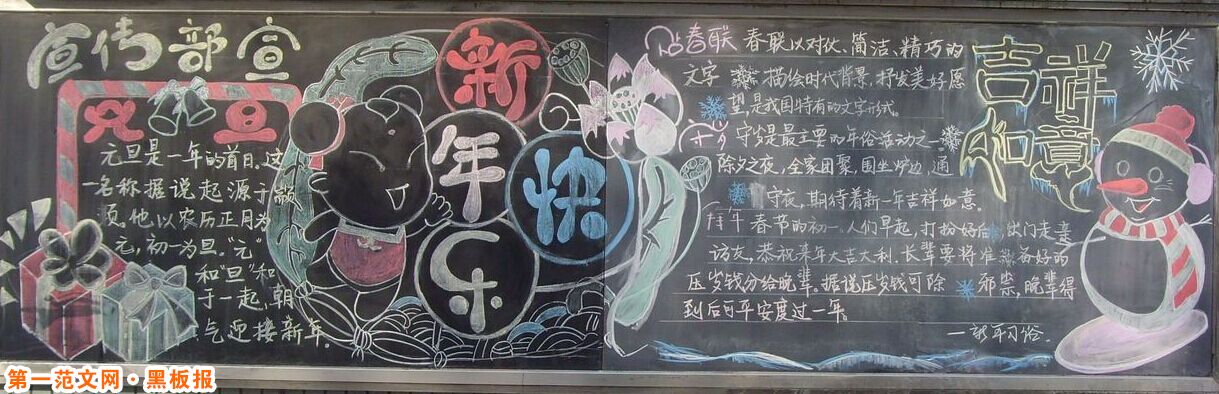 宣传部宣
元旦
元旦是一年的首日。这
一名称据说起源于颛
顼，他以农历正月为
元，初一为旦。“元”
和“旦”和
于一起，朝
气迎接新年。
新年快乐
贴春联 春联以对仗、简洁、精巧的
文字 描绘时代背景，抒发美好愿
望，是我国特有的文字形式。
守岁 守岁是最主要的年俗活动之一
除夕之夜，全家团聚，围坐炉边，通
守夜，期待着新一年吉祥如意。
拜年 春节的初一，人们早起，打扮好后 出门走
访友，恭祝来年大吉大利，长辈要将准备好的
压岁钱分给晚辈，据说压岁钱可除 邪祟，晚辈得
到后可平安度过一年。
一新年习俗.
吉祥
如意
第一范文网·黑板报